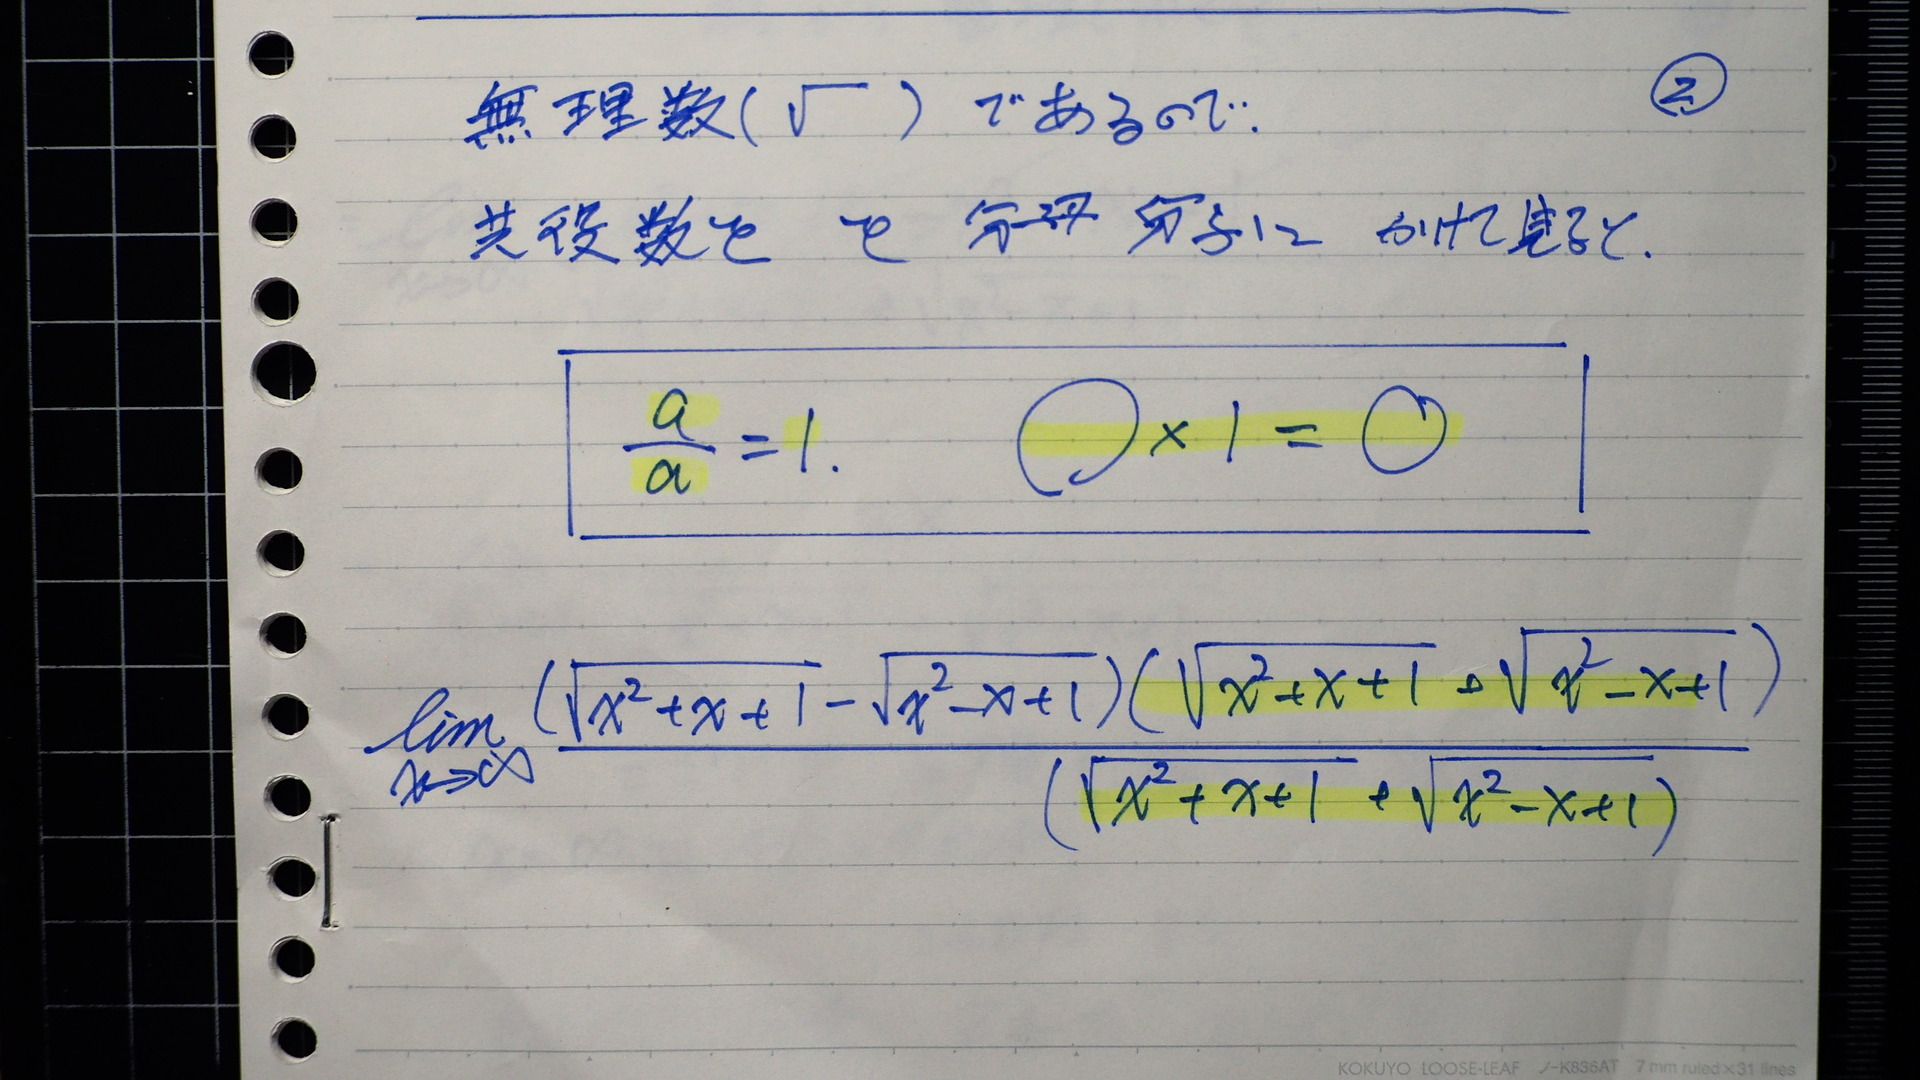 ②
無理数(√ ) であるので.
共役数を を 分母 分子に かけて見ると.
a/a = 1. ◯ × 1 = ◯
lim x→∞ (√x²+x+1 - √x²-x+1)(√x²+x+1 + √x²-x+1) / (√x²+x+1 + √x²-x+1)
KOKUYO LOOSE-LEAF ノ-K836AT 7mm ruled×31 lines